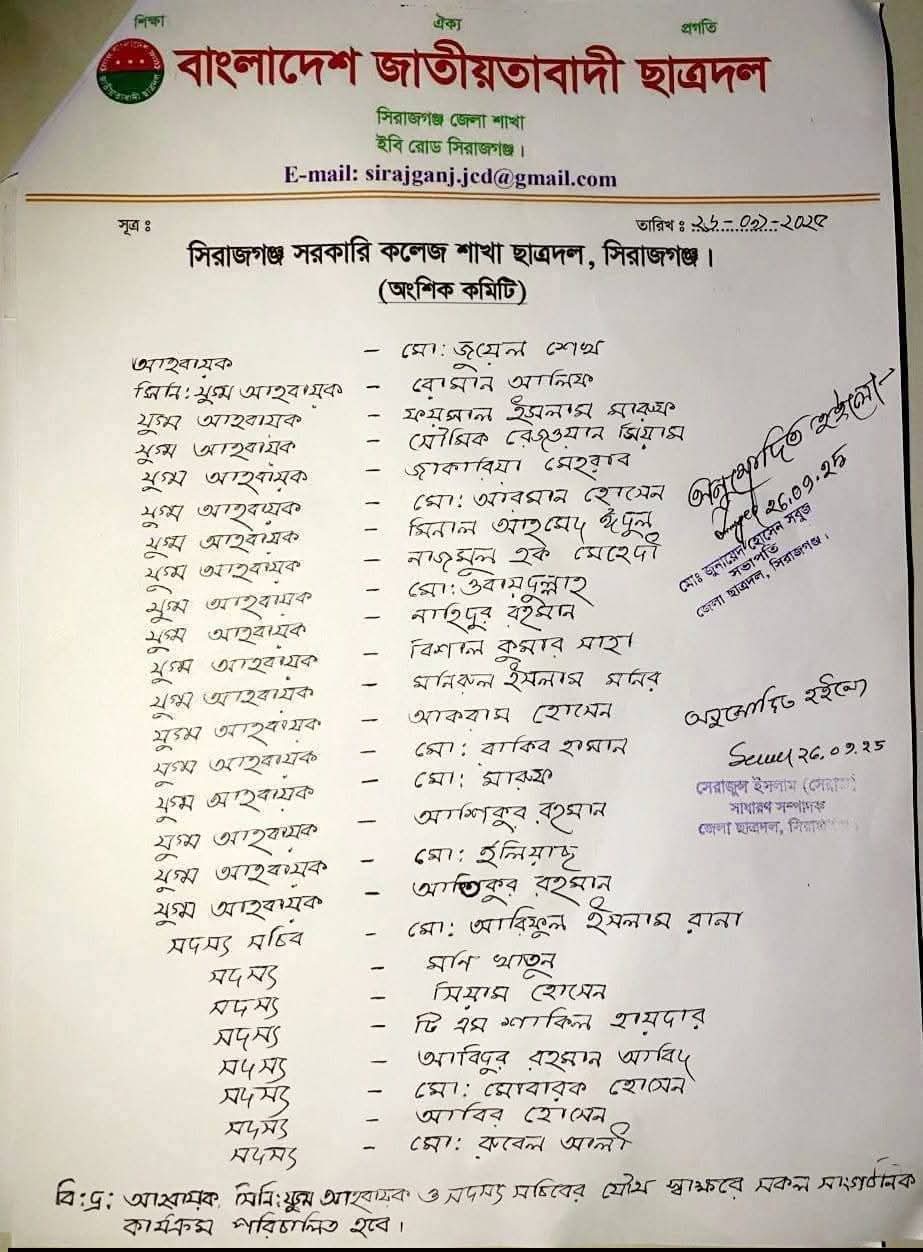 শিক্ষা ঐক্য প্রগতি
বাংলাদেশ জাতীয়তাবাদী ছাত্রদল
সিরাজগঞ্জ জেলা শাখা
ইবি রোড সিরাজগঞ্জ।
E-mail: sirajganj.jcd@gmail.com
সূত্র ঃ
তারিখ ঃ ২৬-০৯-২০২৫
সিরাজগঞ্জ সরকারি কলেজ শাখা ছাত্রদল, সিরাজগঞ্জ।
(অংশিক কমিটি)
আহবায়ক - মো: জুয়েল শেখ
সিনি: যুগ্ম আহবায়ক - রোমান আলিফ
যুগ্ম আহবায়ক - ফয়সাল ইসলাম মারুফ
যুগ্ম আহবায়ক - সৌমিক রেজওয়ান সিয়াম
যুগ্ম আহবায়ক - জাকারিয়া মেহরাব
যুগ্ম আহবায়ক - মো: আরমান হোসেন
যুগ্ম আহবায়ক - মিনাল আহমেদ ঈদুল
যুগ্ম আহবায়ক - নাজমুল হক মেহেদী
যুগ্ম আহবায়ক - মো: ওবায়দুল্লাহ
যুগ্ম আহবায়ক - নাহিদুর রহমান
যুগ্ম আহবায়ক - বিশাল কুমার সাহা
যুগ্ম আহবায়ক - মনিরুল ইসলাম মনির
যুগ্ম আহবায়ক - আকরাম হোসেন
যুগ্ম আহবায়ক - মো: রাকিব হাসান
যুগ্ম আহবায়ক - মো: মারুফ
যুগ্ম আহবায়ক - আশিকুর রহমান
যুগ্ম আহবায়ক - মো: ইলিয়াছ
যুগ্ম আহবায়ক - আতিকুর রহমান
সদস্য সচিব - মো: আরিফুল ইসলাম রানা
সদস্য - মনি খাতুন
সদস্য - সিয়াম হোসেন
সদস্য - টি এম শাকিল হায়দার
সদস্য - আবিদুর রহমান আবিদ
সদস্য - মো: মোবারক হোসেন
সদস্য - আবির হোসেন
সদস্য - মো: রুবেল আলী
অনুমোদিত হইলো
26.09.25
মোঃ জুনায়েদ হোসেন সবুজ
সভাপতি
জেলা ছাত্রদল, সিরাজগঞ্জ।
অনুমোদিত হইলো
26.09.25
সেরাজুল ইসলাম (সেরাজ)
সাধারণ সম্পাদক
জেলা ছাত্রদল, সিরাজগঞ্জ।
বি:দ্র: আহবায়ক, সিনি: যুগ্ম আহবায়ক ও সদস্য সচিবের যৌথ স্বাক্ষরে সকল সাংগঠনিক
কার্যক্রম পরিচালিত হবে।